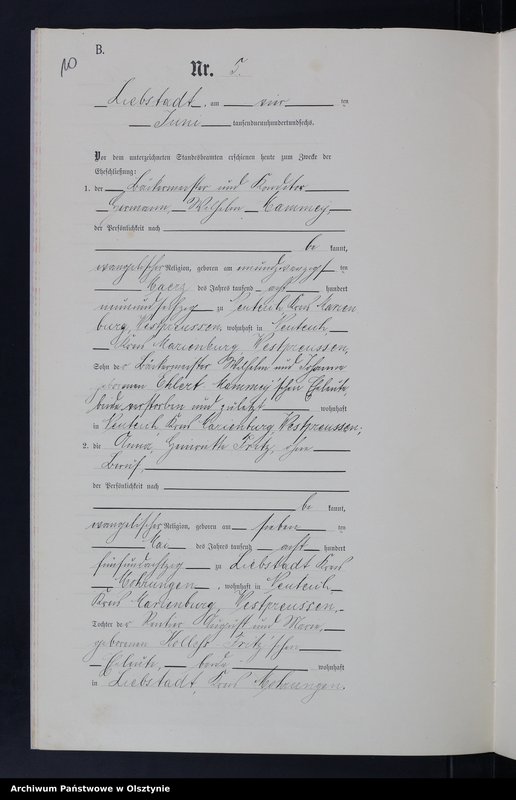 10
B.
Nr. 5.
Liebstadt, am vier ten
Juni tausendneunhundertundsechs.
Vor dem unterzeichneten Standesbeamten erschienen heute zum Zwecke der
Eheschließung:
1. der Bäckermeister und Konditor
Hermann Wilhelm Mammey,
der Persönlichkeit nach
be kannt,
evangelischer Religion, geboren am ten
Maerz des Jahres tausend acht hundert
zu Neuteich Kreis Marien
burg Westpreussen, wohnhaft in Neuteich
Kreis Marienburg Westpreussen,
Sohn der Bäckermeister Wilhelm und Johanna
geborenen Ehlert Mammey'schen Eheleute,
beide verstorben und zuletzt wohnhaft
in Neuteich Kreis Marienburg Westpreussen;
2. die Anna Henriette Fritz, ohne
Beruf,
der Persönlichkeit nach
be kannt,
evangelischer Religion, geboren am sieben ten
Mai des Jahres tausend acht hundert
fünfundachtzig zu Liebstadt Kreis
Mohrungen, wohnhaft in Neuteich
Kreis Marienburg, Westpreussen,
Tochter der Rentier August und Marie,
geborenen Fritz'schen
Eheleute, beide wohnhaft
in Liebstadt, Kreis Mohrungen.
Archiwum Państwowe w Olsztynie